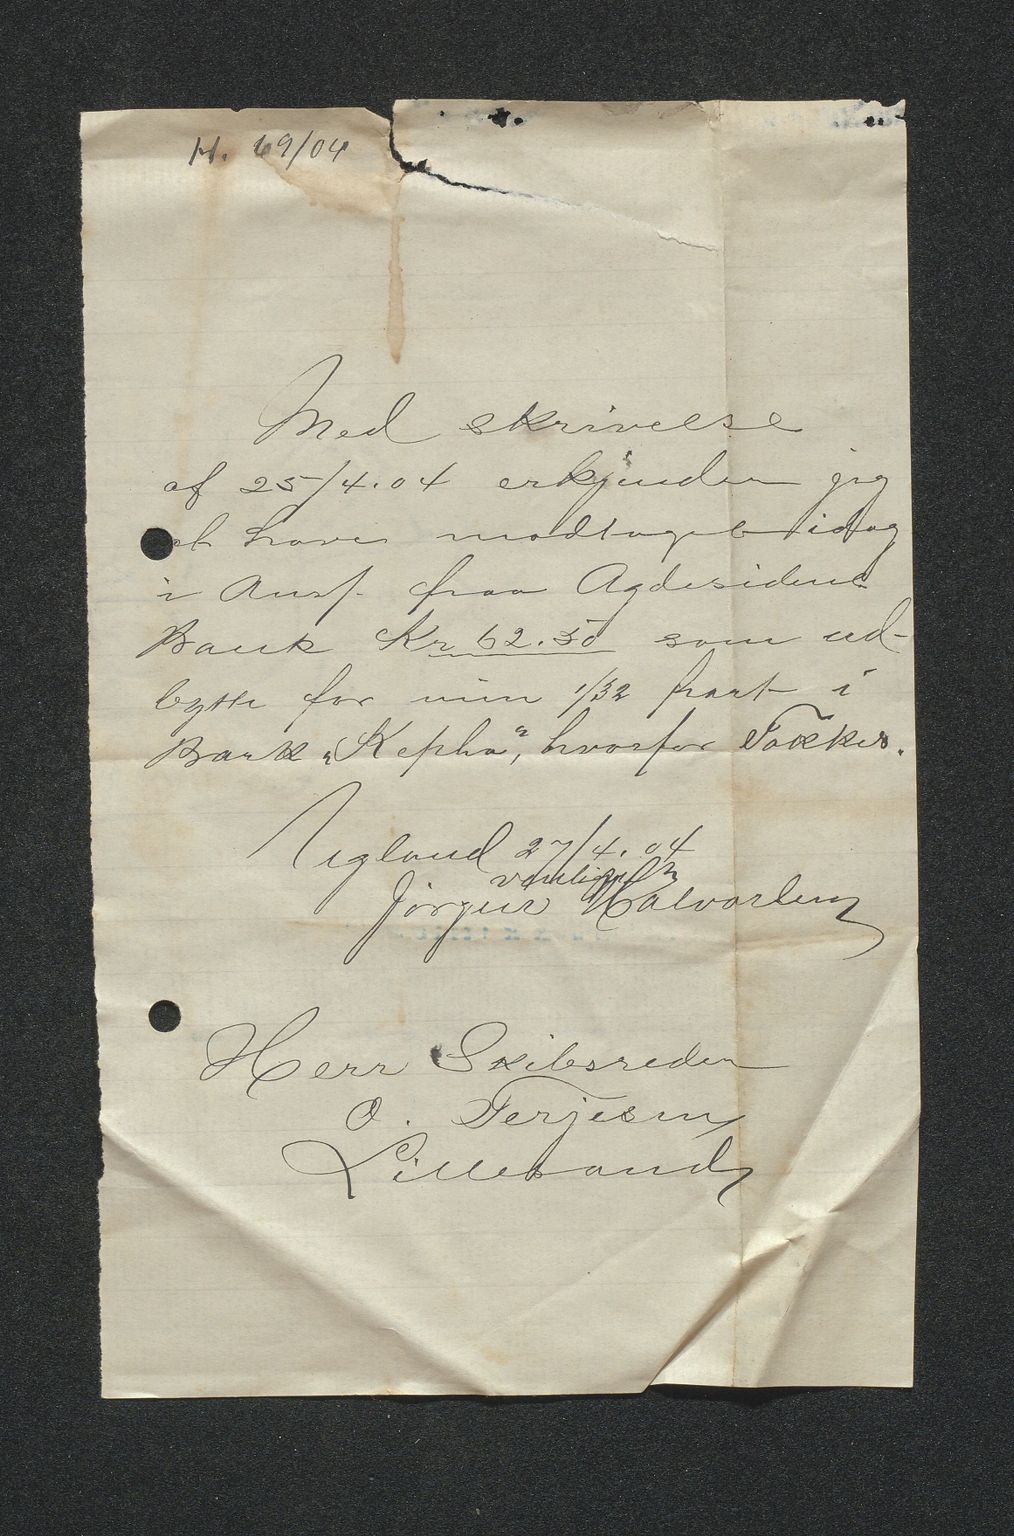 H. 69/04
Med skrivelse
af 25/4.04 erkjender jeg
at have modtaget idag
i Anf. fraa Agdesidens
Bank Kr 62.50 som ud-
bytte for min 1/32 part i
Bark "Kepha", hvorfor Takkes.
Vigland 27/4.04
venligst
Jörgen Halvorsen
Herr Skibsreder
O. Terjesen
Lillesand